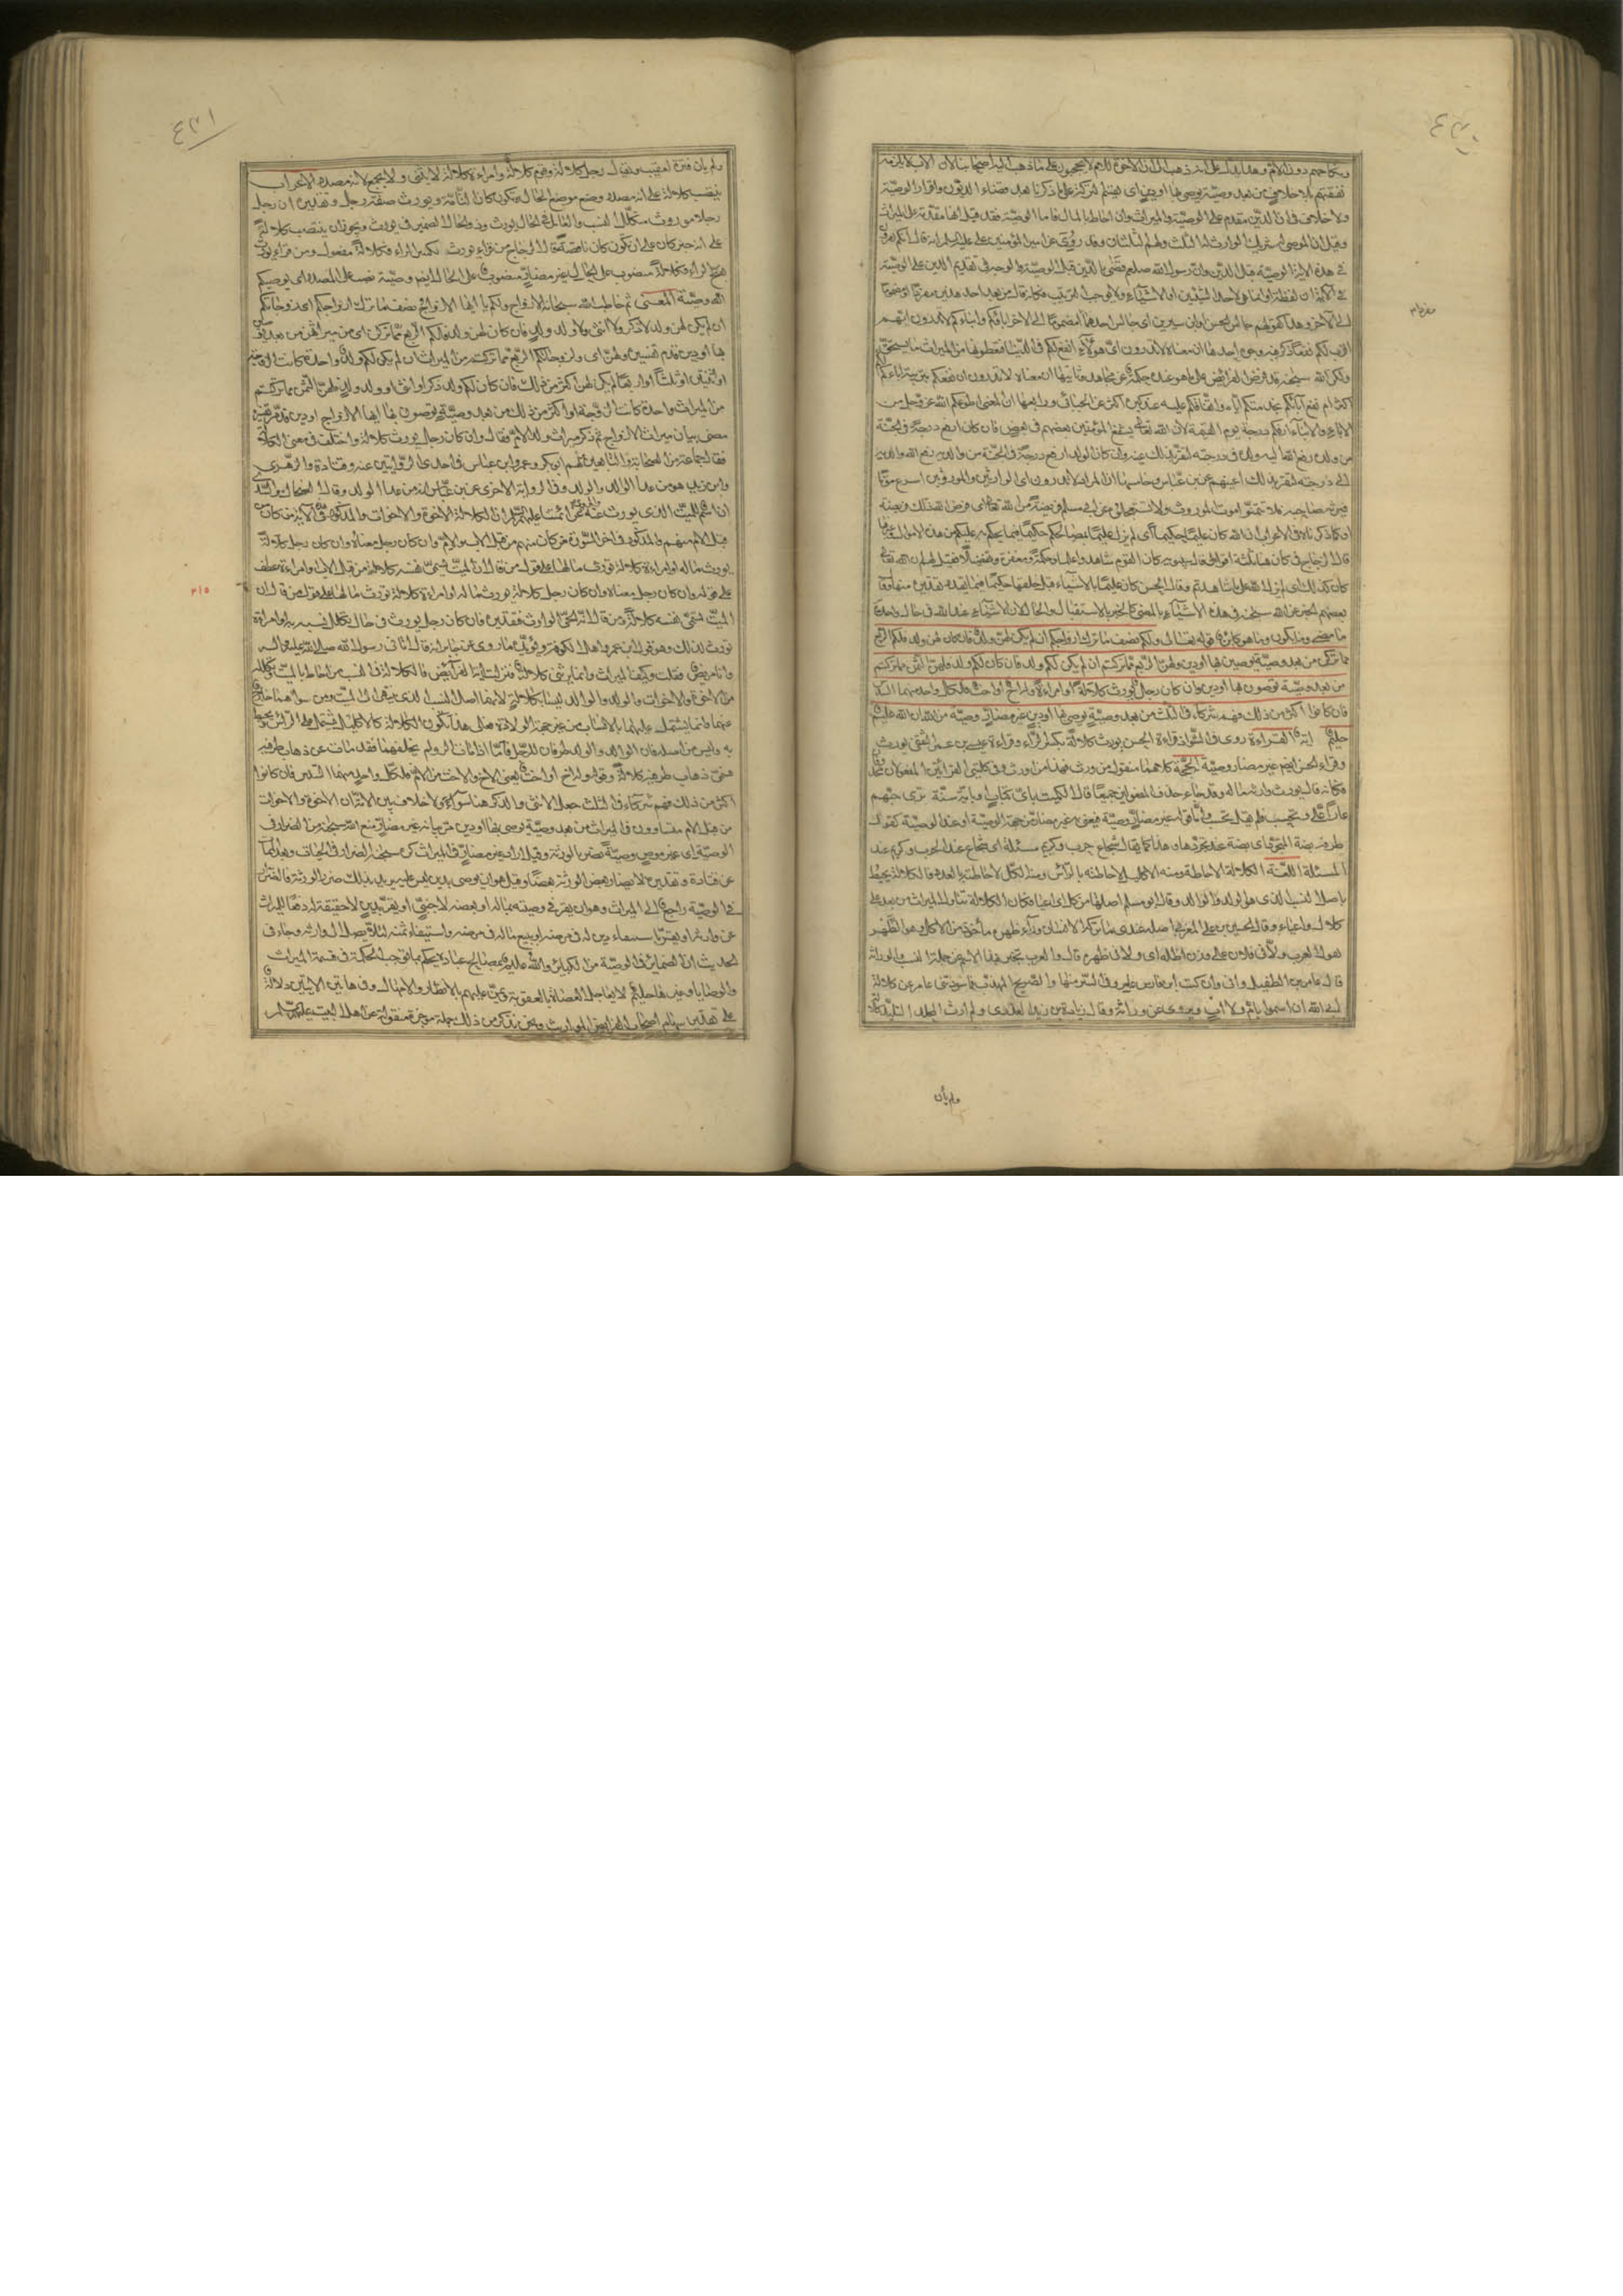 ٤٣٠
نفقتهم بلا خلاف من بعد وصية يوصى بها او دين اى يقسم التركة على ما ذكرنا بعد قضاء الديون واقرار الوصية
ولا خلاف فى ان الدين مقدم على الوصية والميراث وان احاط بالمال فاما الوصية فقد قيل انها مقدمة على الميراث
وقيل ان الموصى له شريك الوارث له الثلث ولهم الثلثان وقد روى عن امير المؤمنين على عليه السلم انه قال انكم تقرؤن
فى هذه الاية الوصية قبل الدين وان رسول الله صلعم قضى بالدين قبل الوصية والوجه فى تقديم الدين على الوصية
فى الآية ان لفظة او انما هى لاحد الشيئين او الاشياء ولا يوجب الترتيب فكانه قال من بعد احد هذين مفردا او مضموما
الى الآخر وهذا كقولهم جالس الحسن او ابن سيرين اى جالس احدهما او مضموما الى الآخر اباؤكم وابناؤكم لا تدرون ايهم
اقرب لكم نفعا ذكر فيه وجوه احدها ان معناه لا تدرون اى هؤلاء انفع لكم فى الدنيا فتعطونهما من الميراث ما يستحق
ولكن الله سبحنه قد فرض الفرائض على ما هو عنده حكمة عن مجاهد وثانيها ان معناه لا تدرون ان نفعكم بتربية اباءكم لكم
اكثر ام نفع آبائكم بخدمتكم اياه وانفاقكم عليه عند كبره اكثر عن الجبائى ورابعها ان المعنى اطوعكم الله عز وجل من
الاباء والابناء ارفعكم درجة يوم القيمة لان الله تعالى يشفع المؤمنين بعضهم فى بعض فان كان ارفع درجة فى الجنة
من ولده رفع الله اليه ولده فى درجته لتقر بذلك عينه وان كان الولد ارفع درجة فى الجنة من والديه رفع الله والديه
الى درجته لتقر بذلك اعينهم عن ابن عباس وخامسها ان المراد لا تدرون اى الوارثين والموروثين اسرع موتا
فيرثه صاحبه فلا تتمنوا موت الموروث ولا تستعجلوه عن ابى مسلم فريضة من الله تعالى اى فرض الله ذلك فريضة
او كما ذكرناه فى الاعراب ان الله كان عليما حكيما اى لم يزل عليما بمصالحكم حكيما فيما يحكم به عليكم من هذه الاموال وغيرها
قال الزجاج فى كان هنا ثلثة اقوال قال سيبويه كان القوم شاهدوا علما وحكمة ومغفرة وتفضلا فقيل لهم ان الله تعالى
كان كذلك اى لم يزل الله على ما شاهدتم وقال الحسن كان عليما بالاشياء قبل خلقها حكيما فيما يقدره تقديره منها وقال
بعضهم الخبر عن الله سبحنه فى هذه الاشياء بالمضى كالخبر بالاستقبال والحال لان الاشياء عند الله فى حال واحدة
ما مضى وما يكون وما هو كائن قوله تعالى ولكم نصف ما ترك ازواجكم ان لم يكن لهن ولد فان كان لهن ولد فلكم الربع
مما تركن من بعد وصية يوصين بها او دين ولهن الربع مما تركتم ان لم يكن لكم ولد فان كان لكم ولد فلهن الثمن مما تركتم
من بعد وصية توصون بها او دين وان كان رجل يورث كلالة او امراة وله اخ او اخت فلكل واحد منهما السدس
فان كانوا اكثر من ذلك فهم شركاء فى الثلث من بعد وصية يوصى بها او دين غير مضار وصية من الله ان الله عليم
حليم اية القراءة روى فى الشواذ قراءة الحسن يورث كلالة بكسر الراء وقراءة عيسى بن عمر الثقفى يورث
وقراءة الحسن ايضا غير مضار وصية الحجة كلاهما منقول من ورث فهذا من اورث وفى كلتى القراءتين المفعولان محذوفان
فكانه قال يورث وارثه ماله وقد جاء حذف المفعولين جميعا قال الكميت باى كتاب او باية سنة ترى حبهم
عارا على وتحسب فلم يعد تحسب واما قوله غير مضار وصية فيعنى به غير مضار من جهة الوصية او عند الوصية كقول
طرفة بضة المتجرد اى بضة عند تجردها وهذا كما يقال شجاع حرب وكريم مسئلة اى شجاع عند الحرب وكريم عند
المسئلة اللغة الكلالة الاحاطة ومنه الاكليل لاحاطته بالراس ومنه الكل لاحاطته بالعدد فالكلالة تحيط
باصل النسب الذى هو الولد والوالد وقال ابو مسلم اصلها من كل اى اعيا فكان الكلالة تناول الميراث من بعد على
كلال واعياء وقال الحسين بن على المغربى اصله عندى ما تركه الانسان وراء ظهره مأخوذ من الاكل وهو الظهر
تقول العرب ولانى فلان على وزن اظله اى ولانى ظهره قال والعرب تخبر بهذا الاسم عن جملة النسب والوراثة
قال عامر بن الطفيل وانى وان كنت ابن فارس عامر وفى السر منها والصريح المهذب فما سودتنى عامر عن كلالة
ابى الله ان اسمو بام ولا اب ويروى عن وراثة وقال زيادة بن زيد العذرى ولم ارث المجد التليد كلالة
ولم يأن
٤٣١
ولم يان فترة لعقيب ويقال رجل كلالة وقوم كلالة وامراءة كلالة لا يثنى ولا يجمع لانه مصدر الاعراب
ينتصب كلالة على انه مصدر وضع موضع الحال ويكون كان التامة ويورث صفة رجل وتقديره ان رجل
رجل موروث متكلل النسب والعامل فى الحال يورث وذو الحال الضمير فى يورث ويجوز ان ينتصب كلالة
على انه خبر كان على ان يكون كان ناقصة قال الزجاج من قراء يورث بكسر الراء فكلالة مفعول ومن قراء يورث
بفتح الراء فكلالة منصوب على الحال غير مضار منصوب على الحال ايضا وصية نصب على المصدر اى يوصيكم
الله وصية المعنى ثم خاطب الله سبحانه الازواج ولكم يا ايها الازواج نصف ما ترك ازواجكم اى زوجاتكم
ان لم يكن لهن ولد لا ذكر ولا انثى ولا ولد ولد فان كان لهن ولد فلكم الربع مما تركن اى من ميراثهن من بعد
بها او دين قدم تفسيره ولهن اى ولزوجاتكم الربع مما تركتم من الميراث ان لم يكن لكم ولد واحدة كانت الزوجة
او اثنتين او ثلثا او اربعا لم يكن لهن اكثر من ذلك فان كان لكم ولد ذكر او انثى او ولد ولد فلهن الثمن مما تركتم
من الميراث واحدة كانت الزوجة او اكثر من ذلك من بعد وصية توصون بها ايها الازواج او دين
مضى بيان ميراث الازواج ثم ذكر ميراث ولد الام فقال وان كان رجل يورث كلالة واختلف فى معنى الكلالة
فقال جماعة من الصحابة والتابعين منهم ابو بكر وعمر وابن عباس فى احدى الروايتين عنه وقتادة والزهرى
وابن زيد هو من عدا الوالد والولد وفى الرواية الاخرى عن ابن عباس انه من عدا الولد وقال الضحاك والسدى
انه اسم للميت الذى يورث عنه والمروى عن ائمتنا عليهم السلم ان الكلالة الاخوة والاخوات والمذكور فى الاية من كان من
قبل الام منهم والمذكور فى اخر السورة من كان منهم من قبل الاب والام وان كان رجل معناه وان كان رجل كلالة
يورث ماله او امراءة كلالة تورث مالها على قول من قال ان الميت يسمى نفسه كلالة من قبل الاب وامراءة عطف
على قوله وان كان رجل معناه وان كان رجل كلالة يورث ماله او امراءة كلالة تورث مالها على قول من قال ان
الميت يسمى نفسه كلالة ومن قال انه الحى الوارث فتقديره وان كان رجل يورث فى حال تكلل نسبه به او امراءة
تورث كذلك وهو قول ابن عمر واهل الكوفة ويؤيده ما روى عن جابر انه قال اتانى رسول الله صلى الله عليه واله
وانا مريض فقلت وكيف الميراث وانما يرثنى كلالة فنزلت اية الفرايض فالكلالة فى النسب من احاط بالميت وتكلله
من الاخوة والاخوات والولد والوالد ليسا بكلالة لانهما اصل النسب الذى ينتهى الى الميت ومن سواهما خارج
عنهما وانما يشتمل عليهما بالانتساب من غير جهة الولادة فعلى هذا تكون الكلالة كالاكليل يشتمل على الراس ويحيط
به وليس من اصله فان الوالد والولد طرفان للرجل فاذا مات الرجل ولم يخلفهما فقد مات عن ذهاب طرفيه
فسمى ذهاب طرفيه كلالة وقوله وله اخ او اخت يعنى الاخ والاخت من الام فلكل واحد منهما السدس فان كانوا
اكثر من ذلك فهم شركاء فى الثلث جعل الانثى والذكر هنا سواء ولا خلاف بين الامة ان الاخوة والاخوات
من قبل الام متساوون فى الميراث من بعد وصية يوصى بها او دين مر بيانه غير مضار منع الله سبحنه من الضرار فى
الوصية اى غير موص وصية تضر بالورثة وقيل اراد غير مضار فى الميراث كره سبحنه الضرار فى الحياة وبعد المماة
عن قتادة وتقديره لا يضار بعض الورثة بعضا وقيل هو ان يوصى بدين ليس عليه يريد بذلك ضرر الورثة فالضرار
فى الوصية راجع الى الميراث وهو ان يضر فى وصيته بماله او بعضه لاجنبى او يقر بدين لا حقيقة له دفعا للميراث
عن وارثه او يقر باستيفاء دين له فى مرضه او يبيع ماله فى مرضه واستيفاء ثمنه لئلا يصل الى وارثه وجاء فى
الحديث ان الضرار فى الوصية من الكبائر والله عليم بمصالح عباده يحكم بما توجبه الحكمة فى قسمة الميراث
والوصايا وغيرها حليم لا يعاجل العصاة بالعقوبة ويمن عليهم بالانظار والامهال وفى هاتين الايتين دلالة
على تقدير سهام اصحاب الفرايض المواريث ونحن نذكر من ذلك جملة موجزة منقولة عن اهل البيت عليهم السلم
٢١٥